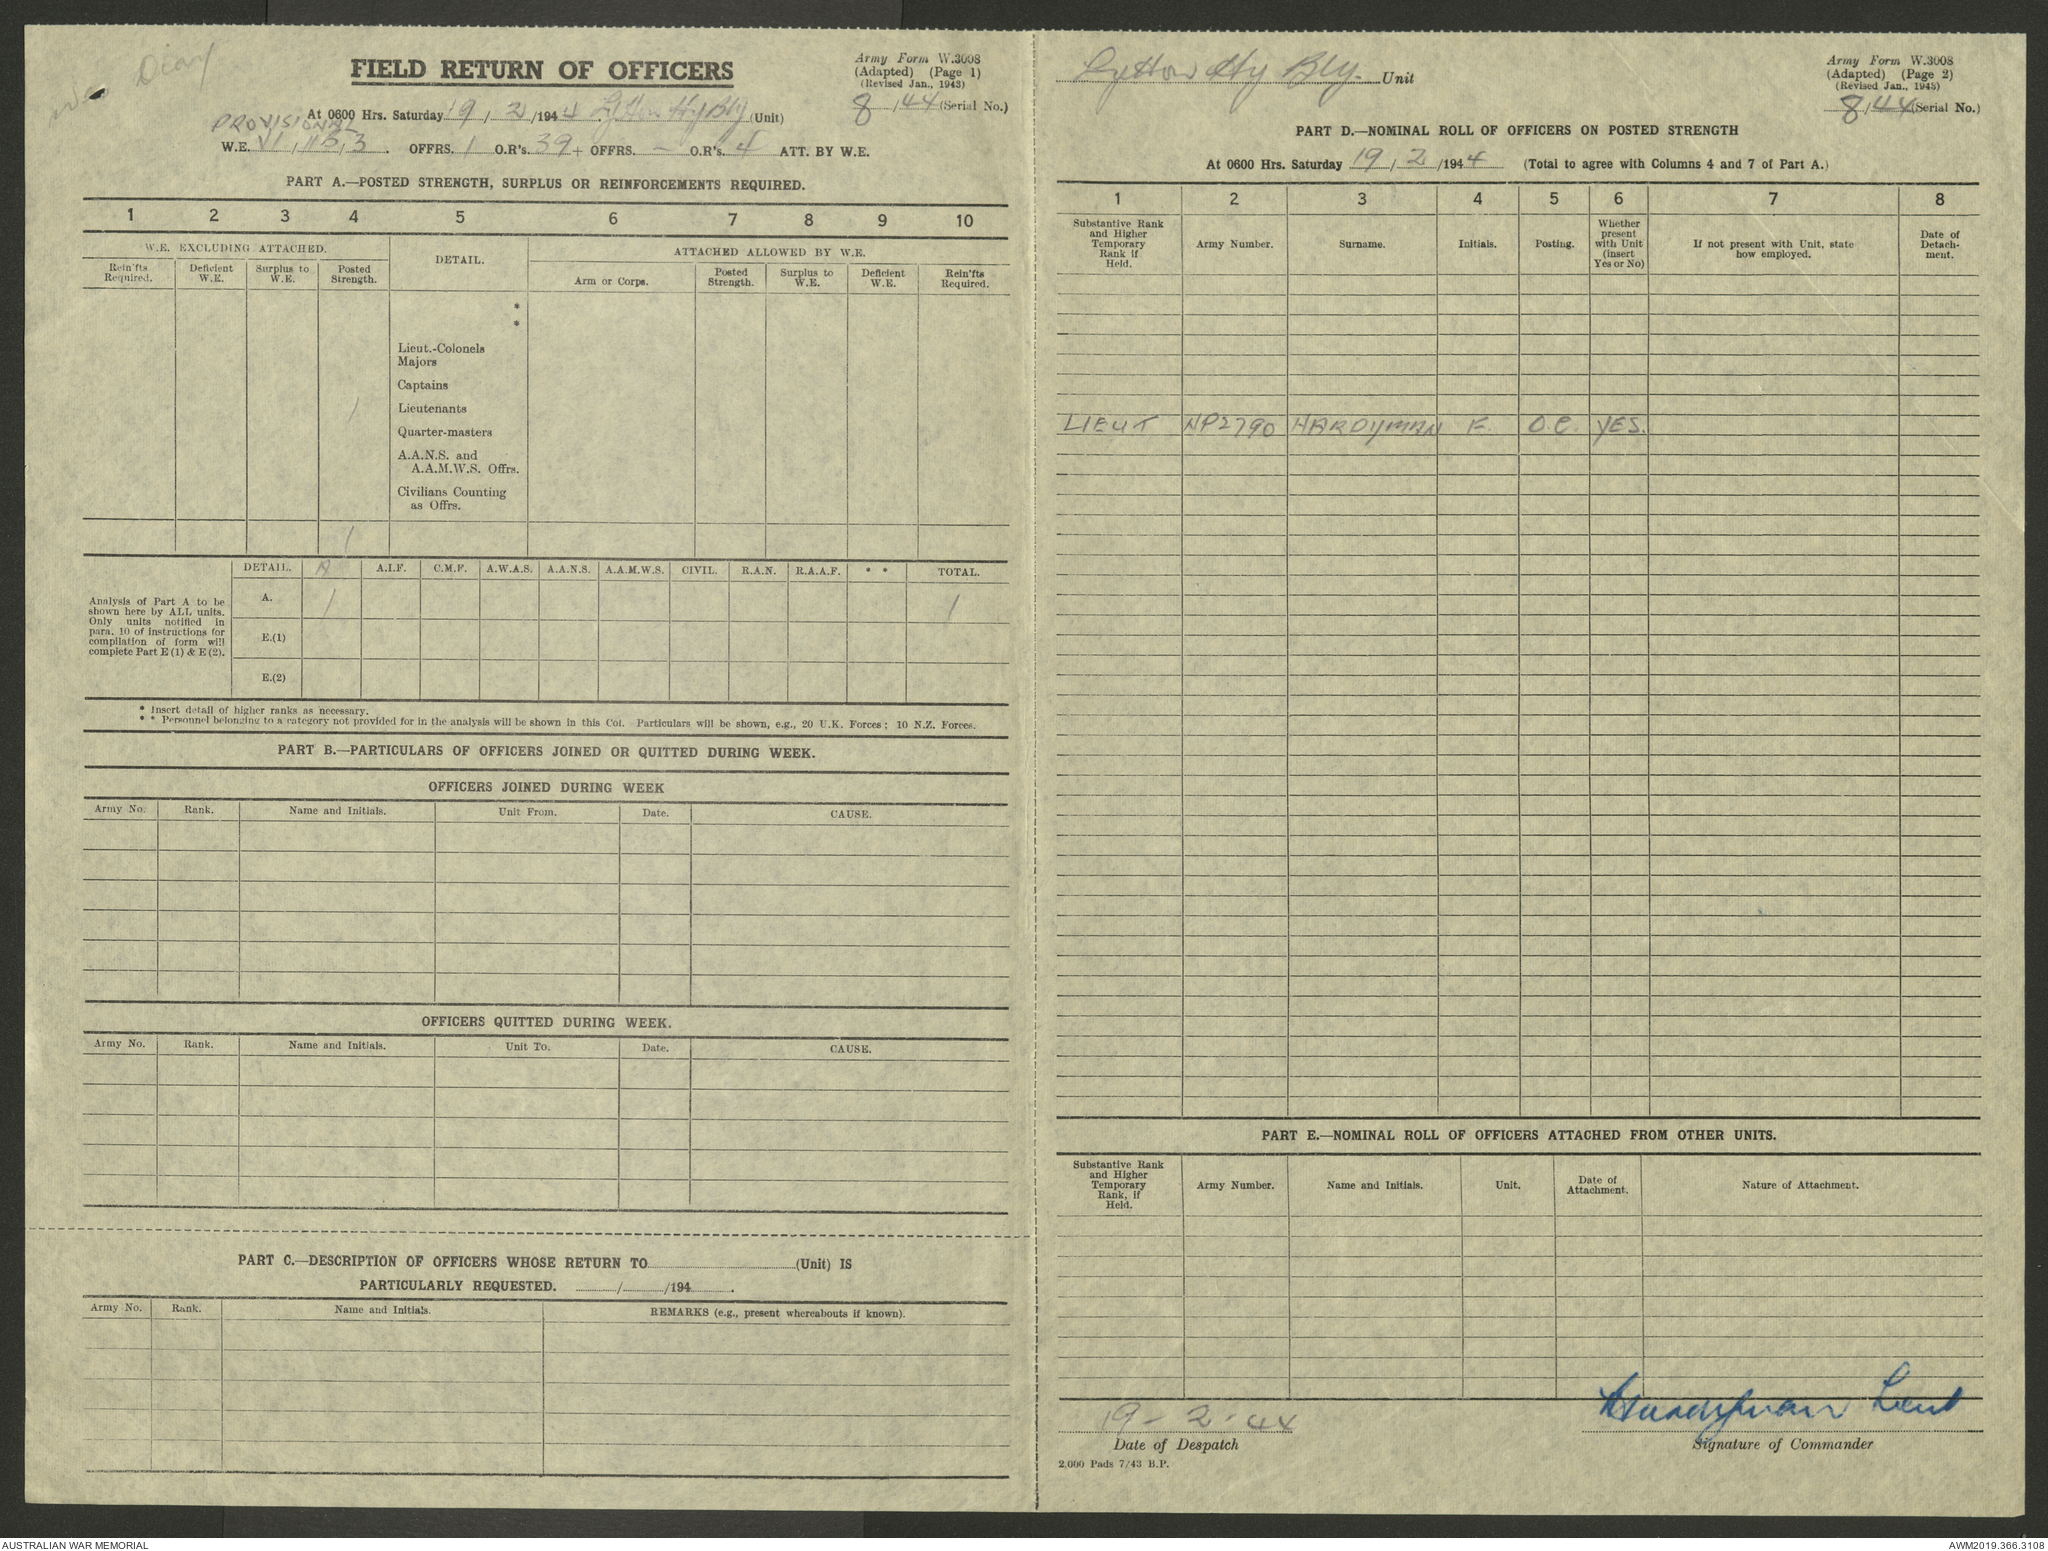 War Diary
FIELD RETURN OF OFFICERS
Army Form W.3008
(Adapted) (Page 1)
(Revised Jan., 1943)
At 0600 Hrs. Saturday 19 / 2 /1944 Lytton Hy Bty (Unit)
8 / 44 (Serial No.)
PROVISIONAL
W.E. VI, 115, 3. OFFRS. 1 O.R's. 39 + OFFRS. — O.R's. 4 ATT. BY W.E.
PART A.—POSTED STRENGTH, SURPLUS OR REINFORCEMENTS REQUIRED.
1 2 3 4 5 6 7 8 9 10
W.E. EXCLUDING ATTACHED. DETAIL. ATTACHED ALLOWED BY W.E.
Rein'fts Required. Deficient W.E. Surplus to W.E. Posted Strength. Arm or Corps. Posted Strength. Surplus to W.E. Deficient W.E. Rein'fts Required.
*
*
Lieut.-Colonels
Majors
Captains
1 Lieutenants
Quarter-masters
A.A.N.S. and
A.A.M.W.S. Offrs.
Civilians Counting
as Offrs.
1
DETAIL. A A.I.F. C.M.F. A.W.A.S. A.A.N.S. A.A.M.W.S. CIVIL. R.A.N. R.A.A.F. * * TOTAL.
Analysis of Part A to be
shown here by ALL units.
Only units notified in
para. 10 of instructions for
compilation of form will
complete Part E (1) & E (2).
A. 1 1
E.(1)
E.(2)
* Insert detail of higher ranks as necessary.
* * Personnel belonging to a category not provided for in the analysis will be shown in this Col. Particulars will be shown, e.g., 20 U.K. Forces; 10 N.Z. Forces.
PART B.—PARTICULARS OF OFFICERS JOINED OR QUITTED DURING WEEK.
OFFICERS JOINED DURING WEEK
Army No. Rank. Name and Initials. Unit From. Date. CAUSE.
OFFICERS QUITTED DURING WEEK.
Army No. Rank. Name and Initials. Unit To. Date. CAUSE.
PART C.—DESCRIPTION OF OFFICERS WHOSE RETURN TO (Unit) IS
PARTICULARLY REQUESTED. / /194 .
Army No. Rank. Name and Initials. REMARKS (e.g., present whereabouts if known).
Lytton Hy Bty. Unit
Army Form W.3008
(Adapted) (Page 2)
(Revised Jan., 1943)
8/44 (Serial No.)
PART D.—NOMINAL ROLL OF OFFICERS ON POSTED STRENGTH
At 0600 Hrs. Saturday 19 / 2 /1944 (Total to agree with Columns 4 and 7 of Part A.)
1 2 3 4 5 6 7 8
Substantive Rank and Higher Temporary Rank if Held. Army Number. Surname. Initials. Posting. Whether present with Unit (insert Yes or No) If not present with Unit, state how employed. Date of Detach-ment.
LIEUT NP2790 HARDYMAN F. O.C. YES.
PART E.—NOMINAL ROLL OF OFFICERS ATTACHED FROM OTHER UNITS.
Substantive Rank and Higher Temporary Rank, if Held. Army Number. Name and Initials. Unit. Date of Attachment. Nature of Attachment.
19 - 2 - 44
Date of Despatch
FHardyman Lieut
Signature of Commander
2,000 Pads 7/43 B.P.
AUSTRALIAN WAR MEMORIAL
AWM2019.366.3108